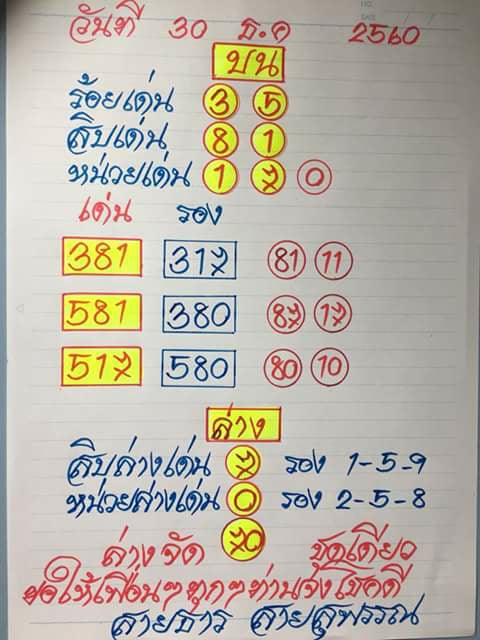 วันที่ 30 ธ.ค 2560
บน
ร้อยเด่น 3 5
สิบเด่น 8 1
หน่วยเด่น 1 7 0
เด่น รอง
381 317 81 11
581 380 87 17
517 580 80 10
ล่าง
สิบล่างเด่น 7 รอง 1-5-9
หน่วยล่างเด่น 0 รอง 2-5-8
70
ล่างจัด ชุดเดียว
ขอให้เพื่อนๆทุกๆท่านจงโชคดี
สายธาร สายสุพรรณ